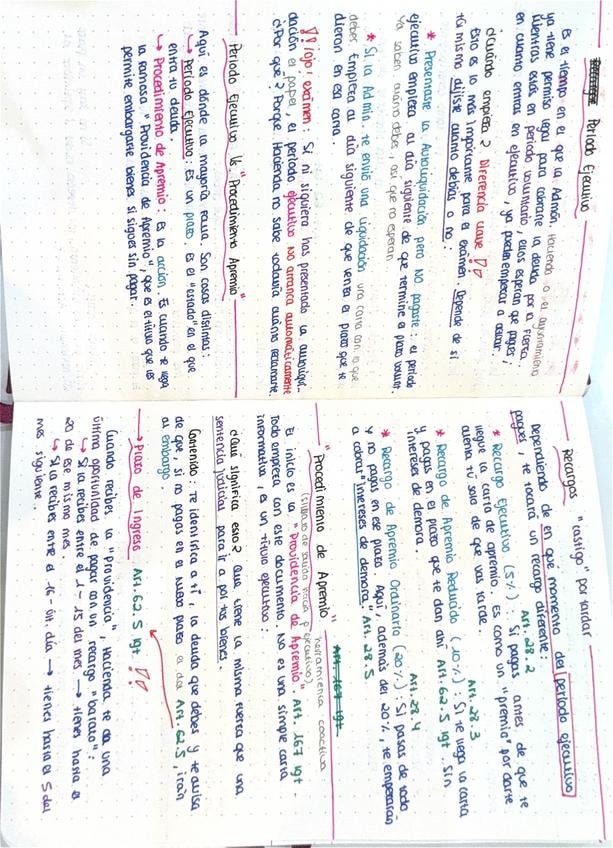 Período Ejecutivo
Es el tiempo en el que la Admón. Hacienda o el ayuntamiento
ya tiene permiso legal para cobrarte la deuda por la fuerza.
Mientras estás en periodo voluntario, ellos esperan que pagues;
en cuanto entras en ejecutivo, ya pueden empezar a actuar.
¿Cuándo empieza? Diferencia clave
Esto es lo más importante para el examen. Depende de si
tú mismo dijiste cuánto debías o no:
* Presentaste la Autoliquidación pero NO pagaste: el período
ejecutivo empieza al día siguiente de que termine el plazo volunt.
Ya saben cuánto debes, así que no esperan
* Si la Admin. te envió una liquidación una carta con lo que
debes Empieza al día siguiente de que venza el plazo que te
dieron en esa carta.
¡ojo! examen: Si ni siquiera has presentado la autoliqui-
dación el papel, el periodo ejecutivo NO arranca automáticamente
¿Por qué? Porque Hacienda no sabe todavía cuánto reclamarte.
Período Ejecutivo Vs. "Procedimiento Apremio"
Aquí es dónde la mayoría falla. Son cosas distintas:
↳ Período Ejecutivo: Es un plazo, es el "estado" en el que
entra tu deuda.
↳ Procedimiento de Apremio: Es la acción. Es cuando te llega
la famosa "Providencia de Apremio", que es el título que les
permite embargarte bienes si sigues sin pagar.
Recargos "castigo" por tardar
Dependiendo de en que momento del período ejecutivo
pagues, te tocará un recargo diferente:
Art. 28.2
* Recargo Ejecutivo (5%): Si pagas antes de que te
llegue la carta de apremio. Es como un "premio" por darte
cuenta tú solo de que vas tarde.
Art. 28.3
* Recargo de Apremio Reducido (10%): Si te llega la carta
y pagas en el plazo que te dan ahí Art. 62.5 lgt. Sin
intereses de demora.
Art. 28.4
* Recargo de Apremio Ordinario (20%): Si pasas de todo
y no pagas en ese plazo. Aquí, además del 20%, te empezarán
a cobrar "intereses de demora". Art. 28.5
"Procedimiento de Apremio" herramienta coactiva
Art. 167 lgt
El inicio es la "Providencia de Apremio". Art. 167 lgt.
Todo empieza con este documento. No es una simple carta
informativa, es un título ejecutivo:
¿Qué significa esto? Que tiene la misma fuerza que una
sentencia judicial para ir a por tus bienes.
Contenido: Te identifica a ti, la deuda que debes y te avisa
de que, si no pagas en el nuevo plazo a da Art. 62.5, irán
al embargo.
→ Plazo de Ingreso Art. 62.5 lgt
Cuando recibes la "Providencia", Hacienda te da una
última oportunidad de pagar con un recargo "barato":
↳ Si la recibes entre el 1 - 15 del mes → tienes hasta el
20 de ese mismo mes.
↳ Si la recibes entre el 16 - últ. día → tienes hasta el 5 del
mes siguiente.